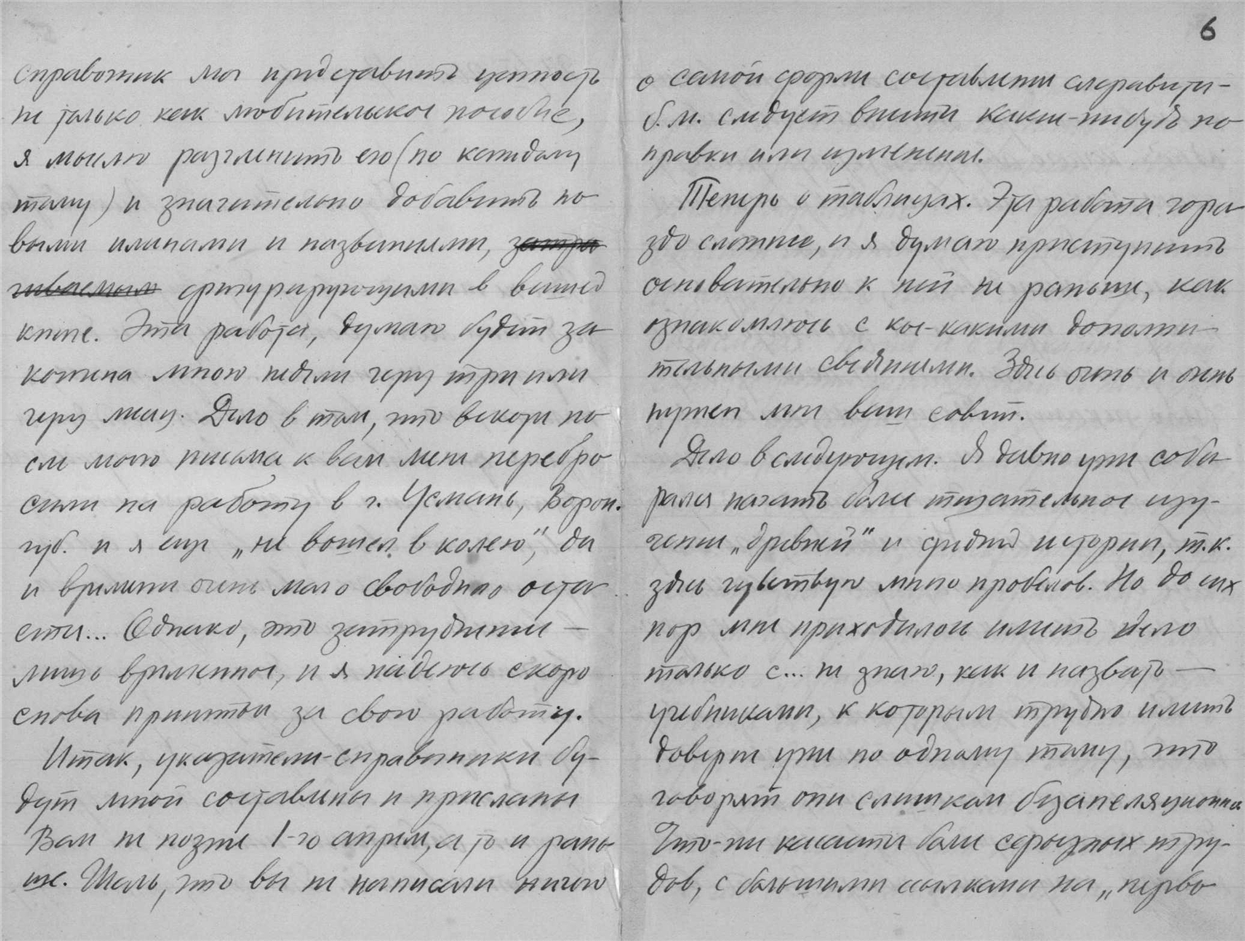 справочник мог представить ценность
не только как любительское пособие,
я мыслю размножить его (по каждому
тому) и значительно добавить но
выми именами и названиями, затра
гиваемыми фигурирующими в вашей
книге. Эта работа, думаю будет за
кончена мною недели через три или
через месяц. Дело в том, что вскоре по
сле моего письма к вам меня перебро
сили на работу в г. Усмань, Ворон.
губ. и я еще „не вошел в колею“, да
и времени очень мало свободного оста
ется... Однако, это затруднение —
лишь временное, и я надеюсь скоро
снова приняться за свою работу.
Итак, указатели-справочники бу-
дут мной составлены и присланы
Вам не позже 1-го апреля, а то и рань
ше. Жаль, что вы не написали ничего
6
о самой форме составления
б.м. следует внести какие-нибудь по
правки или изменения.
Теперь о таблицах. Эта работа гора
здо сложнее, и я думаю приступить
основательно к ней не раньше, как
ознакомлюсь с кое-какими дополни
тельными сведениями. Здесь очень и очень
нужен мне ваш совет.
Дело в следующем. Я давно уже соби
рался начать более тщательное изу-
чение „древней“ и средней истории, т.к.
здесь чувствую много пробелов. Но до сих
пор мне приходилось иметь дело
только с... не знаю, как и назвать —
учебниками, к которым трудно иметь
доверие уже по одному тому, что
говорят они слишком безапеляционно
Что-же касается более серьезных тру-
дов, с большими ссылками на „перво